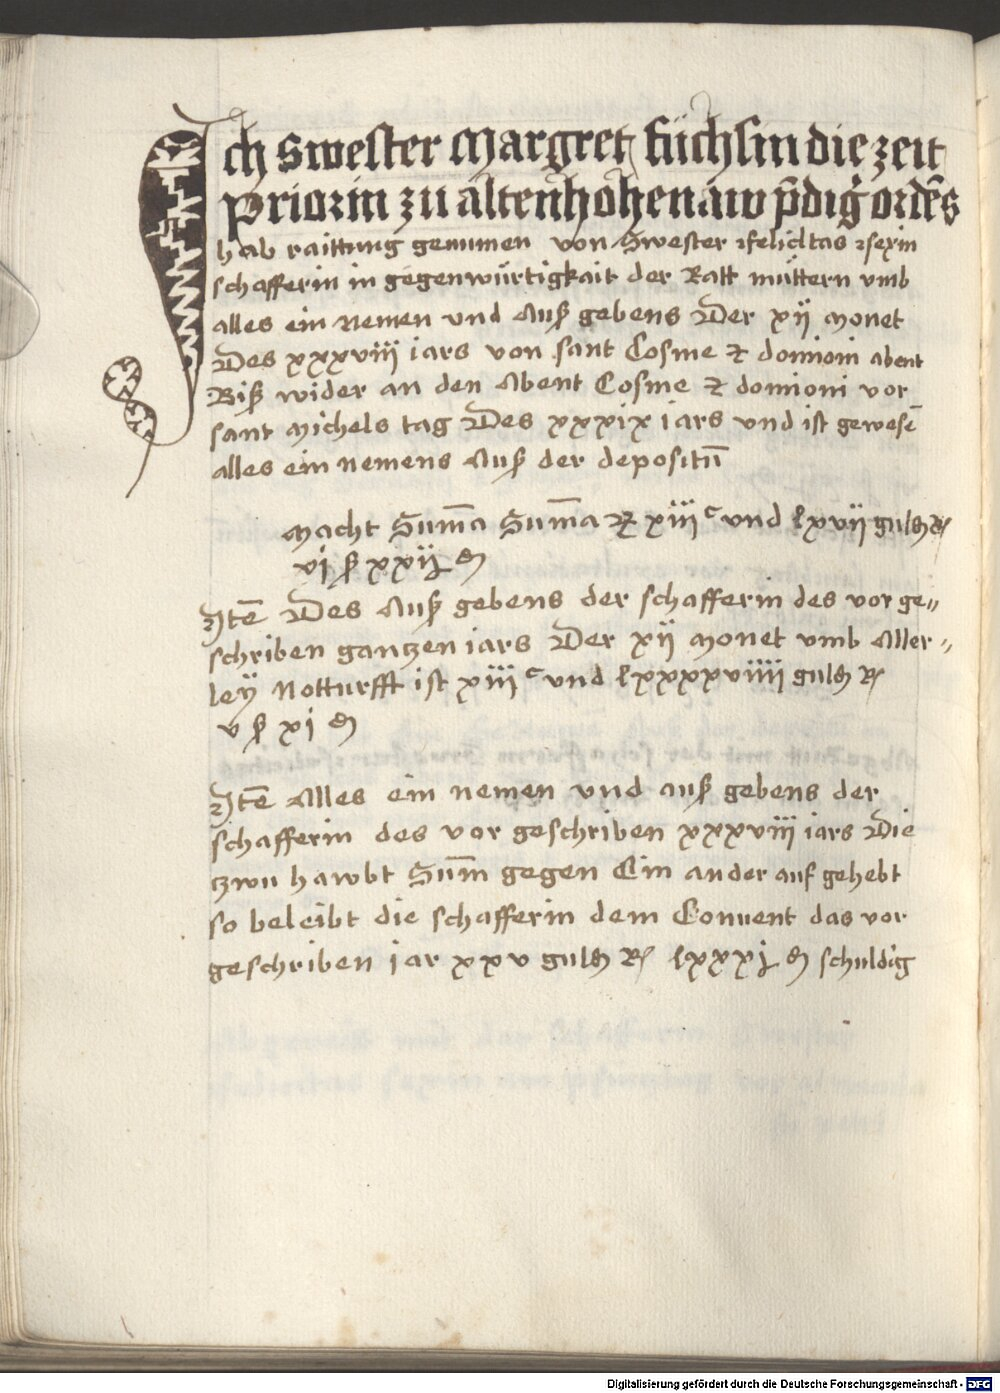 Ich Swester Margret füchsin die zeit
Priorin zu altenhohenaw p̄dig̓ ordēs
hab raittung genumen von Swester felicitas
schafferin in gegenwürtigkait der Ratt müttern vmb
alles ein nemen vnd Auß gebens Der xij monet
Des xxxviii iars von sant Cosme et domioni abent
Biß wider an den Abent Cosme et domioni vor
sant Michels tag Des xxxix iars vnd ist gewesē
alles ein nemens Auß der depositū
Macht Sum̄a Sum̄a xiiiᶜ vnd lxvij guldȷ
vj ß xxij ₰
Itē Des Auß gebens der schafferin des vor ge„
schriben gantzen iars Der xij monet vmb Aller„
ley Notturfft ist xiiiᶜ vnd lxxxxviiii guld R
v ß xj ₰
Itē Alles ein nemen vnd auß gebens der
schafferin des vor geschriben xxxviii iars Die
tzwu hawbt Sum̄ gegen Ein ander auf gehebt
so beleibt die schafferin dem Conuent das vor
geschriben iar xxv guld R lxxxj ₰ schuldig
Digitalisierung gefördert durch die Deutsche Forschungsgemeinschaft - DFG